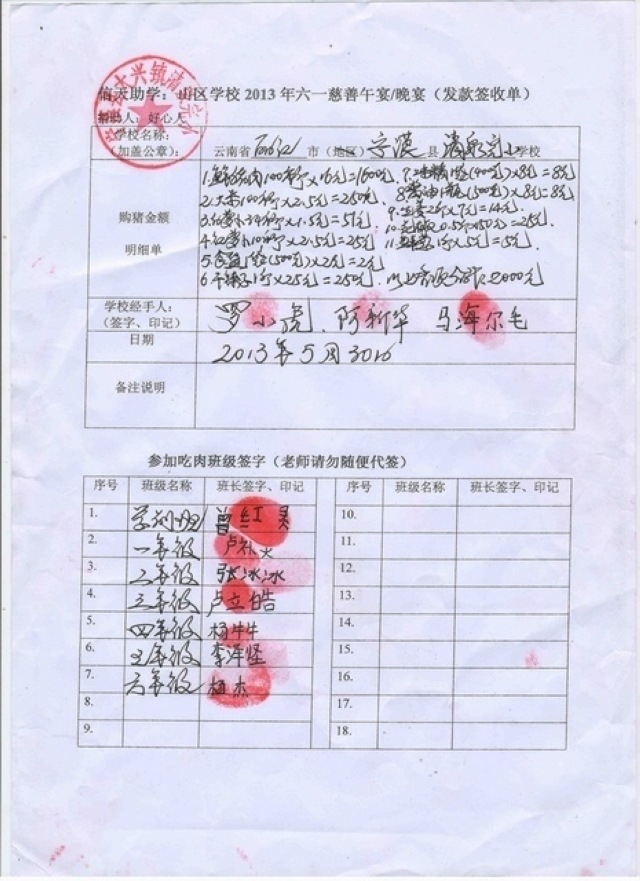 信天助学：山区学校 2013 年六一慈善午宴/晚宴（发款签收单）
捐助人：好心人
学校名称：
（加盖公章）：
云南省 丽江 市（地区）宁蒗 县 完小 学校
购猪金额
明细单
1.鲜猪肉100市斤×16元=1600元 7.味精1袋(400克)×8元=8元
2.大米100市斤×2.5元=250元 8.酱油1瓶(500克)×8元=8元
3. 34市斤×1.5元=51元 9.生姜2斤×7元=14元
4.红萝卜10市斤×2.5元=25元 10. 0.5斤×50元=25元
5.食盐1袋(500克)×2元=2元 11. 1斤×5元=5元
6.干 ×25元=250元 以上 2000元
学校经手人：
（签字、印记）
罗小虎、阿新华 马海尔毛
日期
2013年5月30日
备注说明
参加吃肉班级签字（老师请勿随便代签）
序号 班级名称 班长签字、印记 序号 班级名称 班长签字、印记
1. 学前班 曾红 10.
2. 一年级 卢补火 11.
3. 二年级 张冰冰 12.
4. 三年级 卢立皓 13.
5. 四年级 杨牛牛 14.
6. 五年级 李泽坚 15.
7. 六年级 杰 16.
8. 17.
9. 18.